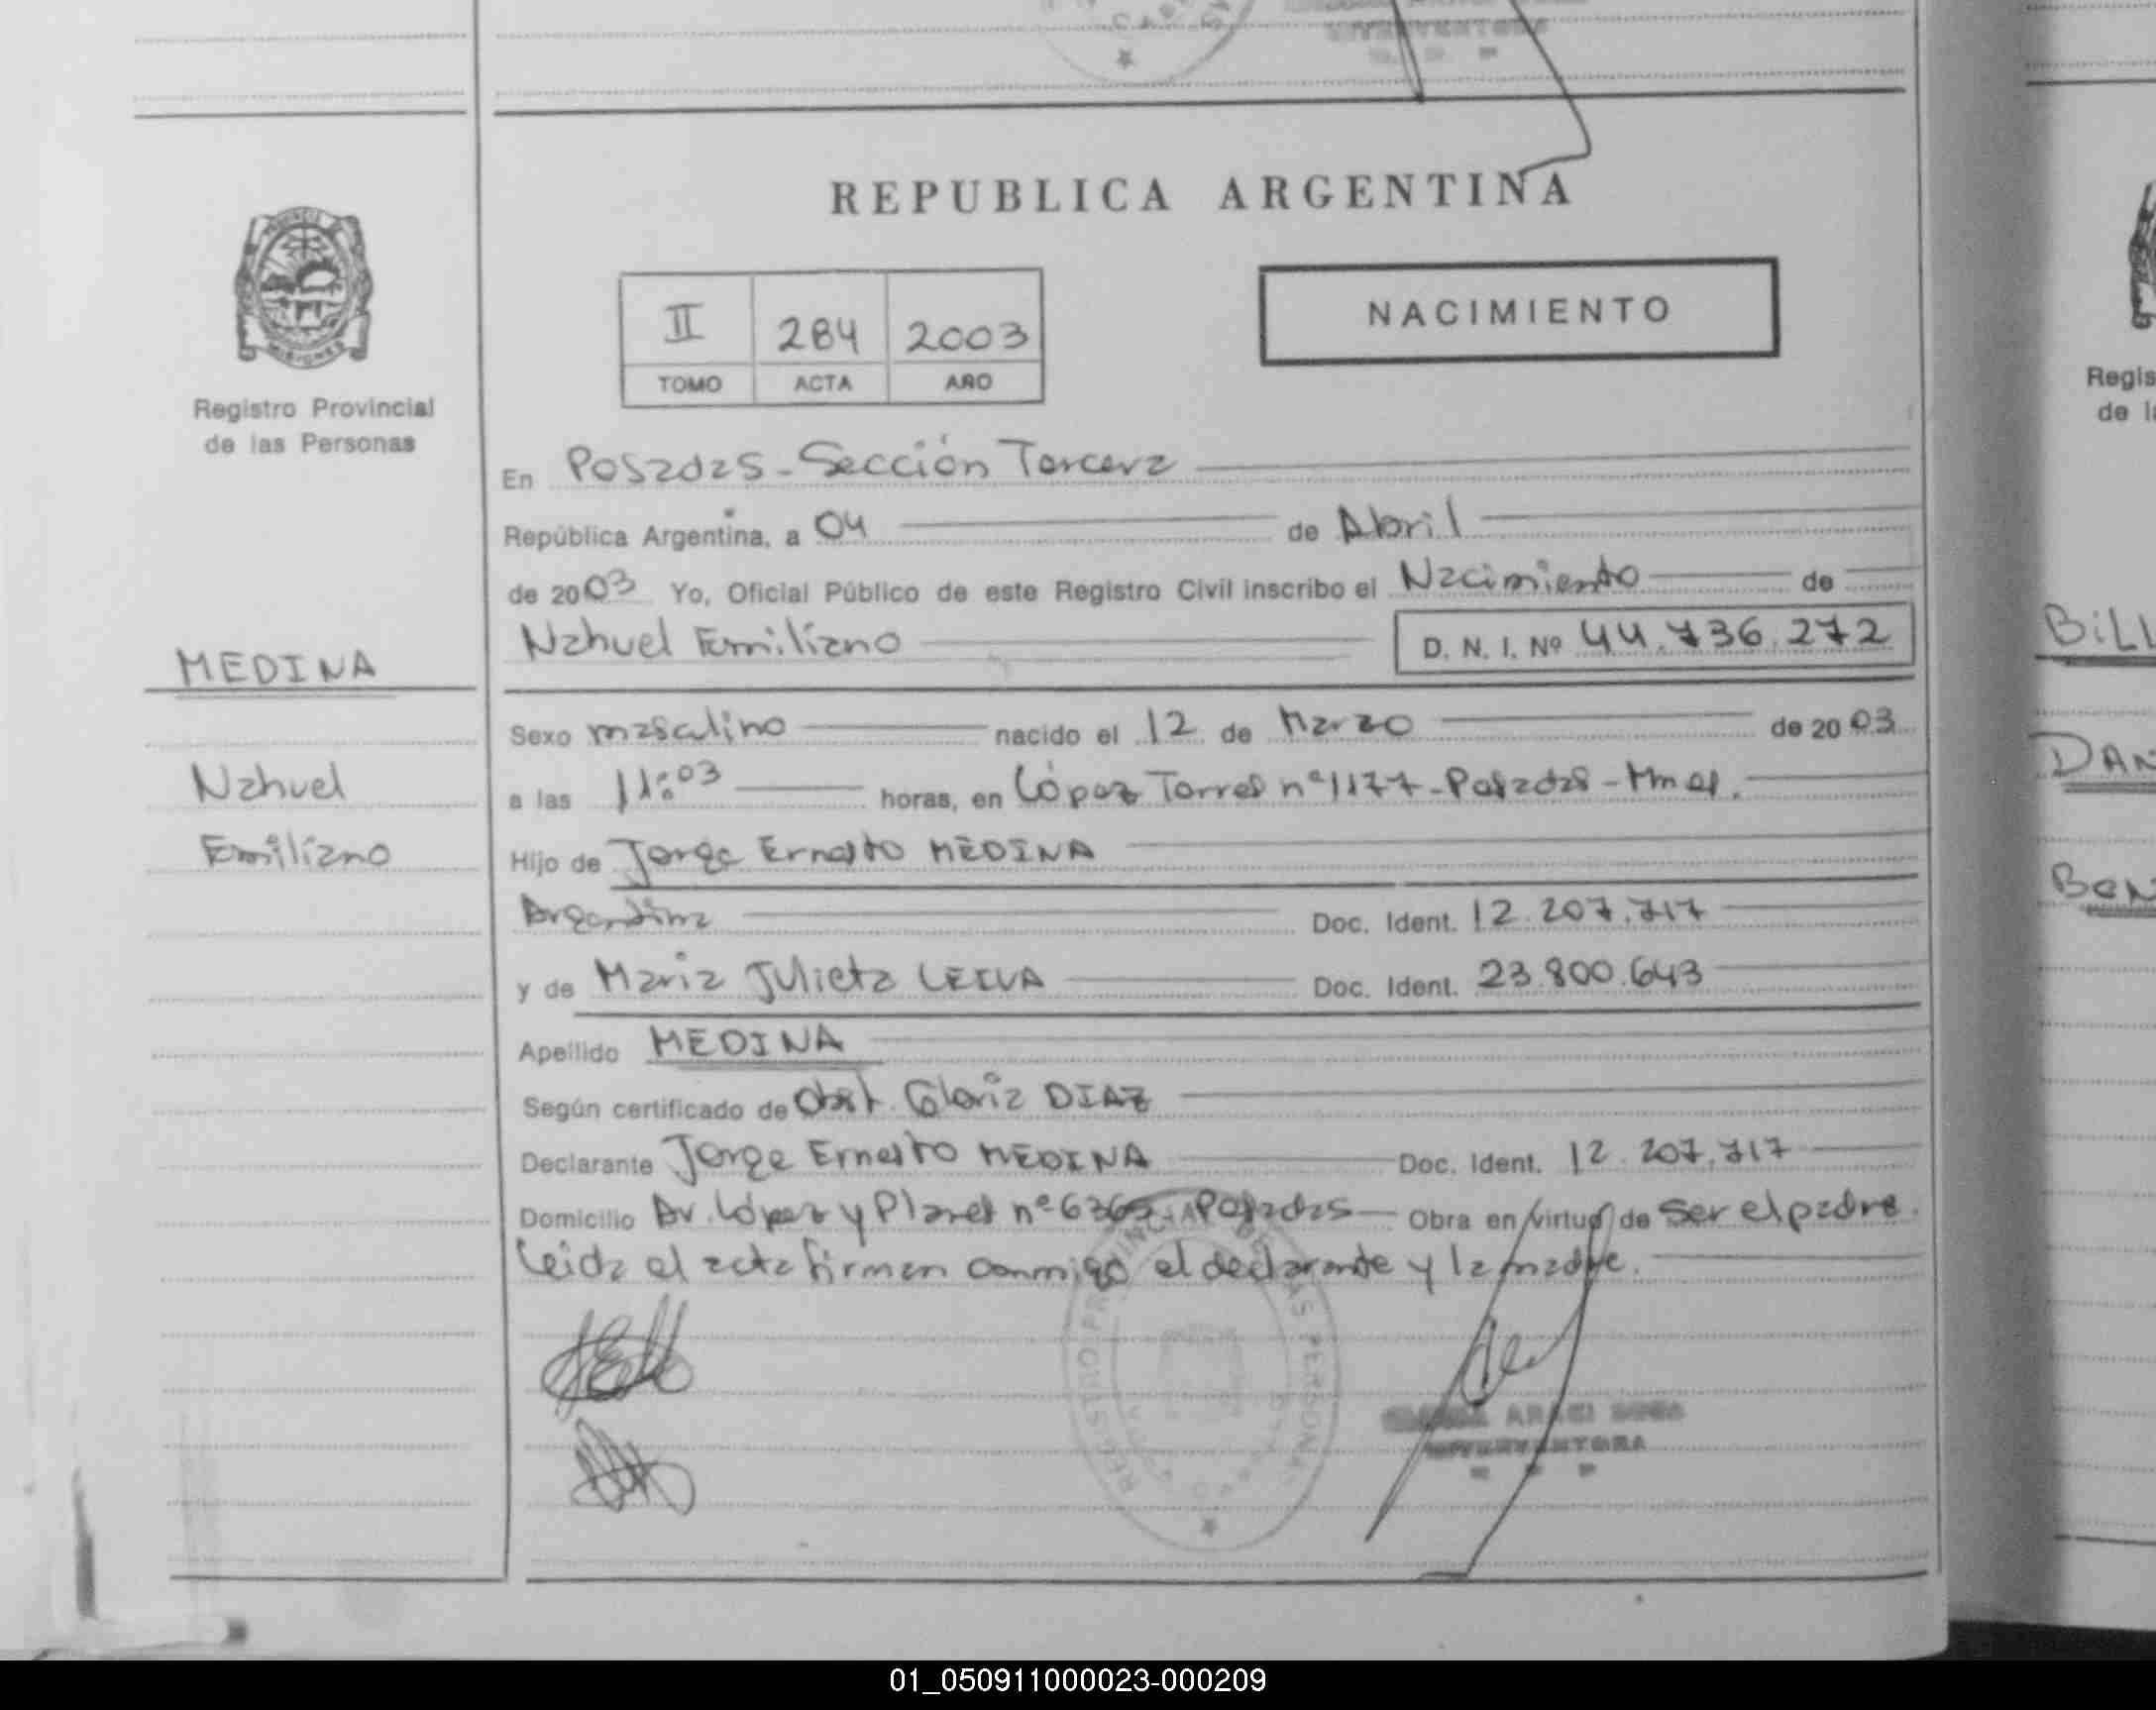 INTERVENTORA
REPUBLICA ARGENTINA
NACIMIENTO
II 284 2003
TOMO ACTA AÑO
Registro Provincial
de las Personas
En Posadas - Sección Tercera
República Argentina, a 04 de Abril
de 2003 Yo, Oficial Público de este Registro Civil inscribo el Nacimiento de
Nahuel Emiliano D. N. I. Nº 44.736.272
MEDINA
Nahuel
Emiliano
Sexo masculino nacido el 12 de Marzo de 2003
a las 11:03 horas, en López Torres nº 1177 - Posadas - Mnes.
Hijo de Jorge Ernesto MEDINA
Argentina Doc. Ident. 12.207.717
y de Maria Julieta LEIVA Doc. Ident. 23.800.643
Apellido MEDINA
Según certificado de Obst. Gloria DIAZ
Declarante Jorge Ernesto MEDINA Doc. Ident. 12.207.717
Domicilio Av. López y Planes nº Posadas Obra en virtud de Ser el padre.
Leida el acta firman conmigo el declarante y la madre.
REGISTRO PROVINCIAL DE LAS PERSONAS
ARACI
INTERVENTORA
MISIONES
Regis
de la
BILL
DAN
BEN
01_050911000023-000209